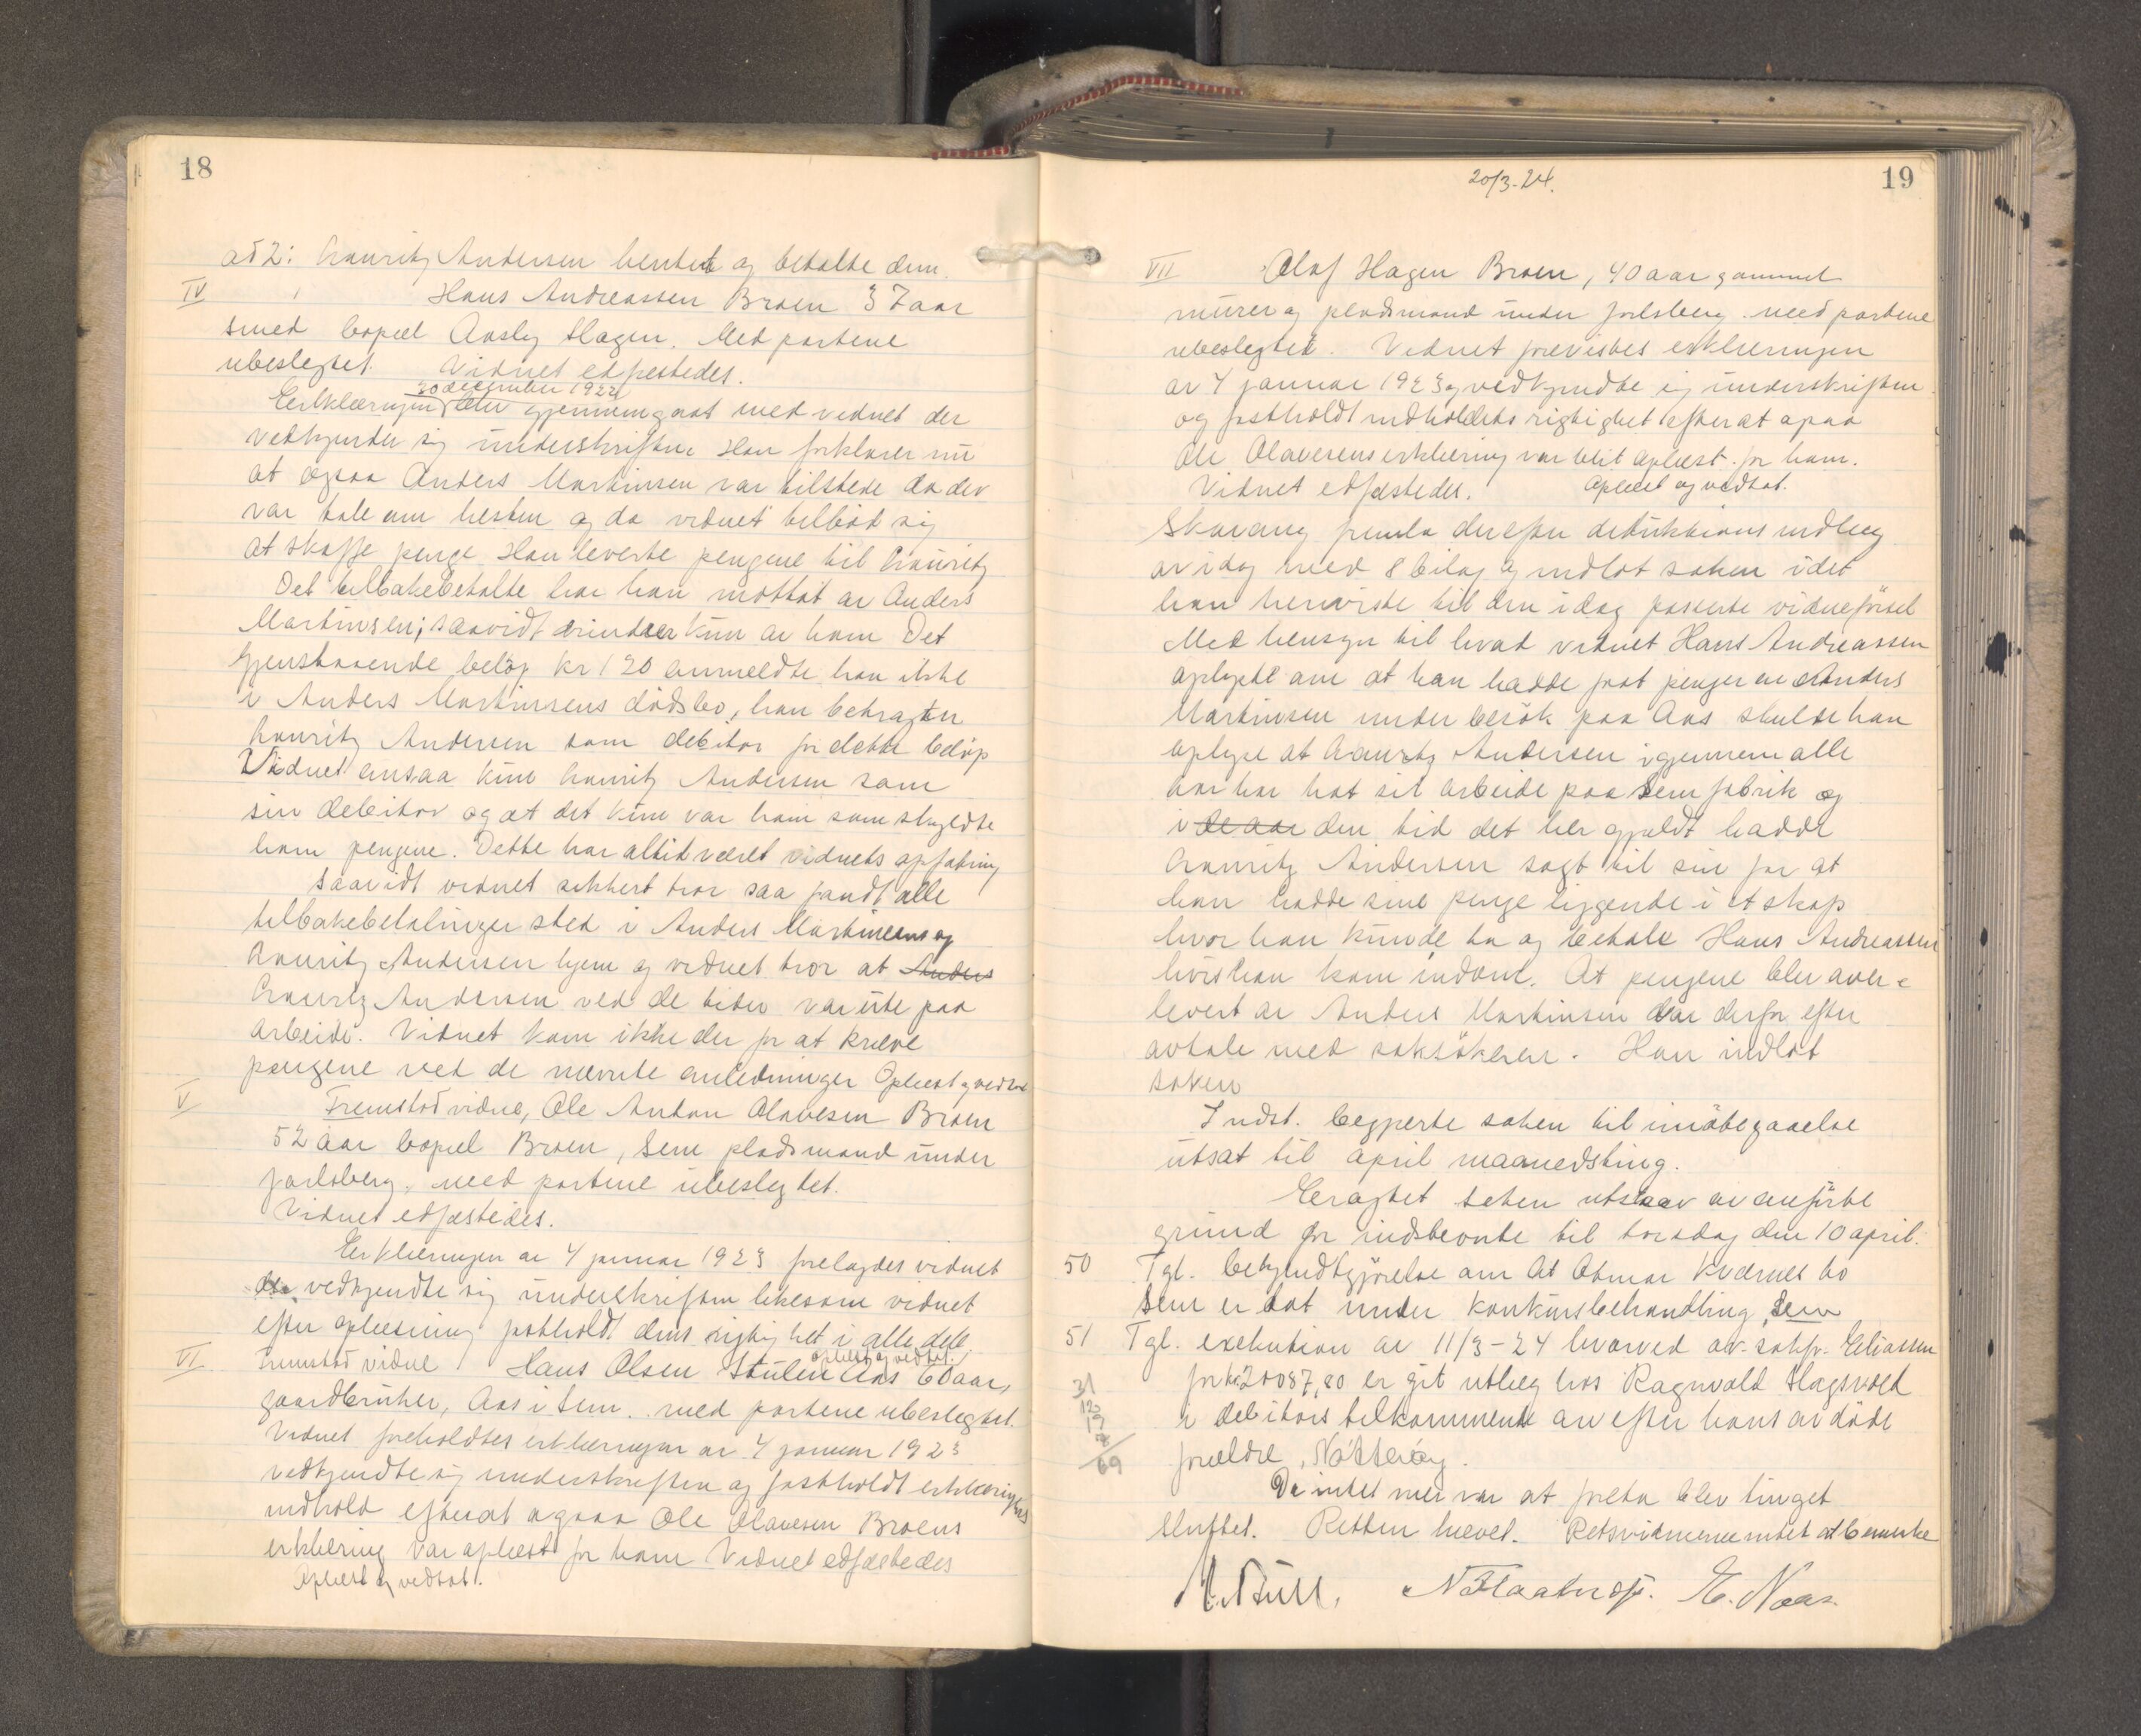 18
ad 2: Lauritz Andersen hentet og betalte dem.
IV Hans Andreassen Broen 37 aar
smed bopæl Aasly Slagen. Med partene
ubeslegtet. Vidnet edfestedes.
30 december 1922
Erklæringen blev gjennemgaat med vidnet der
vedkjender sig underskriften. Han forklarer nu
at ogsaa Anders Martinsen var tilstede da der
var tale om hesten og da vidnet tilbød sig
at skaffe penge. Han leverte pengene til Lauritz
Det tilbakebetalte har han mottat av Anders
Martinsen; saavidt erindrer kun av ham. Det
gjenstaaende beløp kr 120 anmeldte han ikke
i Anders Martinsens dødsbo, han betragter
Lauritz Andersen som debitor for dette beløp
Vidnet ansaa kun Lauritz Andersen som
sin debitor og at det kun var ham som skyldte
ham pengene. Dette har altid været vidnets opfatning
Saavidt vidnet sikkert tror saa fandt alle
tilbakebetalinger sted i Anders Martinsens og
Lauritz Andersen hjem og vidnet tror at Anders
Lauritz Andersen ved de tider var ute paa
arbeide. Vidnet kom ikke der for at kræve
pengene ved de nævnte anledninger Oplæst og vedtat
V Fremstod vidne, Ole Anton Olavesen Broen
52 aar bopæl Broen, Sem pladsmand under
Jarlsberg, med partene ubeslegtet.
Vidnet edfæstedes.
Erklæringen av 4 januar 1923 forelagdes vidnet
der vedkjendte sig underskriften likesom vidnet
efter oplæsning fastholdt dens rigtighet i alle dele
oplæst og vedtat.
VI Fremstod vidne Hans Olsen Stulen Aas 60 aar,
gaardbruker, Aas i Sem. med partene ubeslegtet.
Vidnet foreholdtes erklæringen av 4 januar 1923
vedkjendte sig underskriften og fastholdt erklæringens
indhold efterat ogsaa Ole Olavesen Broens
erklæring var oplæst for ham Vidnet edfæstedes
Oplæst og vedtat.
20/3-24.
19
VII Olaf Hagen Broen, 40 aar gammel
murer og pladsmand under Jarlsberg. med partene
ubeslegtet. Vidnet forevistes erklæringen
av 4 januar 1923 og vedkjendte sig underskriften
og fastholdt indholdets rigtighet efterat ogsaa
Ole Olavesens erklæring var blit oplæst for ham.
Vidnet edfæstedes. Oplæst og vedtat.
Skavang fremla derefter deduktions indlæg
av idag med 8 bilag og indlot saken idet
han henviste til den idag passerte vidneførsel
Med hensyn til hvad vidnet Hans Andreassen
oplyste om at han hadde faat penger av Anders
Martinsen under besøk paa Aas skulde han
oplyse at Lauritz Andersen igjennem alle
aar har hat sit arbeide paa Sem fabrik og
i de aar den tid det her gjældt hadde
Lauritz Andersen sagt til sin far at
han hadde sine penge liggende i et skap
hvor han kunde ta og betale Hans Andreassen
hvis han kom indom. At pengene blev over-
levert av Anders Martinsen var derfor efter
avtale med saksøkeren. Han indlot
saken
Indst. begjærte saken til imøtegaaelse
utsat til april maanedsting.
Eragtet saken utstaar av anførte
grund for indstevnte til torsdag den 10 april.
50 Tgl. bekjendtgjørelse om at Otmar Kvernes bo
Sem er tat under konkursbehandling, Sem
51 Tgl. exekution av 11/3-24 hvorved ov. sakf. Eliassen
for kr 20087,80 er git utlæg hos Ragnvald Hagsvold
i debitors tilkommende arv efter hans avdøde
forældre, Nøtterøy.
31
12
17
69
Da intet mer var at foreta blev tinget
sluttet. Retten hævet. Retsvidnerne intet at bemerke
E. Naas.